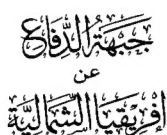 جَبْهَةُ الدِّفَاعِ
عن
إفْريقيَا الشَّمَاليَّة